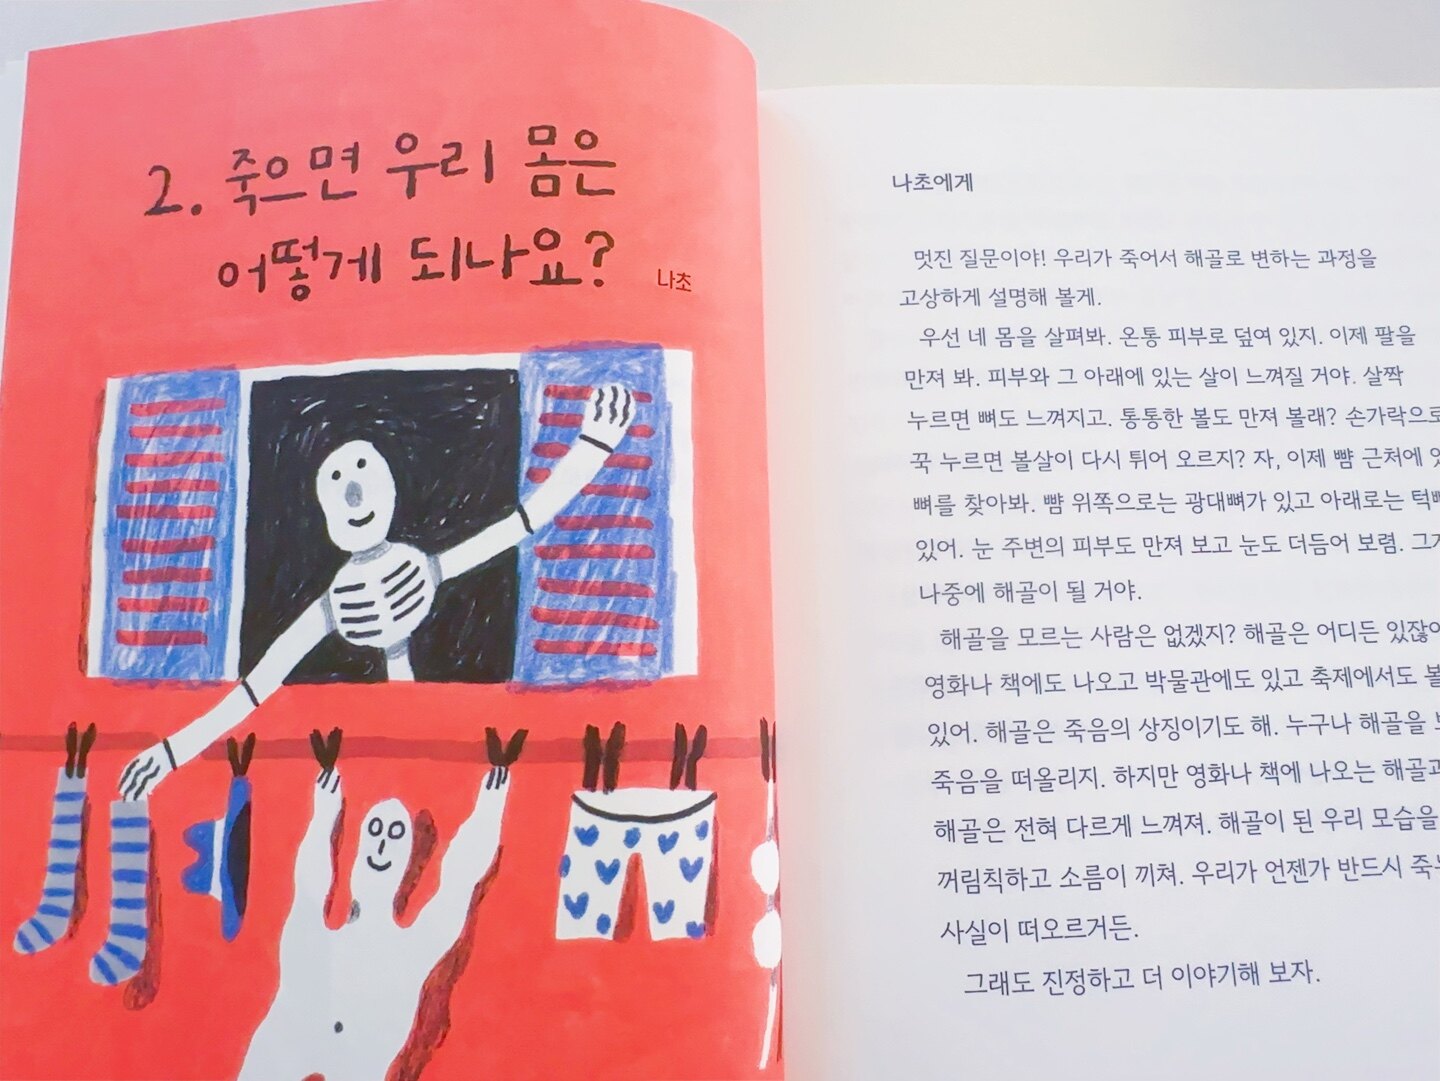 2. 죽으면 우리 몸은
어떻게 되나요?
나초
나초에게
멋진 질문이야! 우리가 죽어서 해골로 변하는 과정을
고상하게 설명해 볼게.
우선 네 몸을 살펴봐. 온통 피부로 덮여 있지. 이제 팔을
만져 봐. 피부와 그 아래에 있는 살이 느껴질 거야. 살짝
누르면 뼈도 느껴지고. 통통한 볼도 만져 볼래? 손가락으로
꾹 누르면 볼살이 다시 튀어 오르지? 자, 이제 뺨 근처에
뼈를 찾아봐. 뺨 위쪽으로는 광대뼈가 있고 아래로는
있어. 눈 주변의 피부도 만져 보고 눈도 더듬어 보렴.
나중에 해골이 될 거야.
해골을 모르는 사람은 없겠지? 해골은 어디든
영화나 책에도 나오고 박물관에도 있고 축제에서도
있어. 해골은 죽음의 상징이기도 해. 누구나 해골을
죽음을 떠올리지. 하지만 영화나 책에 나오는
해골은 전혀 다르게 느껴져. 해골이 된 우리 모습을
꺼림칙하고 소름이 끼쳐. 우리가 언젠가 반드시
사실이 떠오르거든.
그래도 진정하고 더 이야기해 보자.